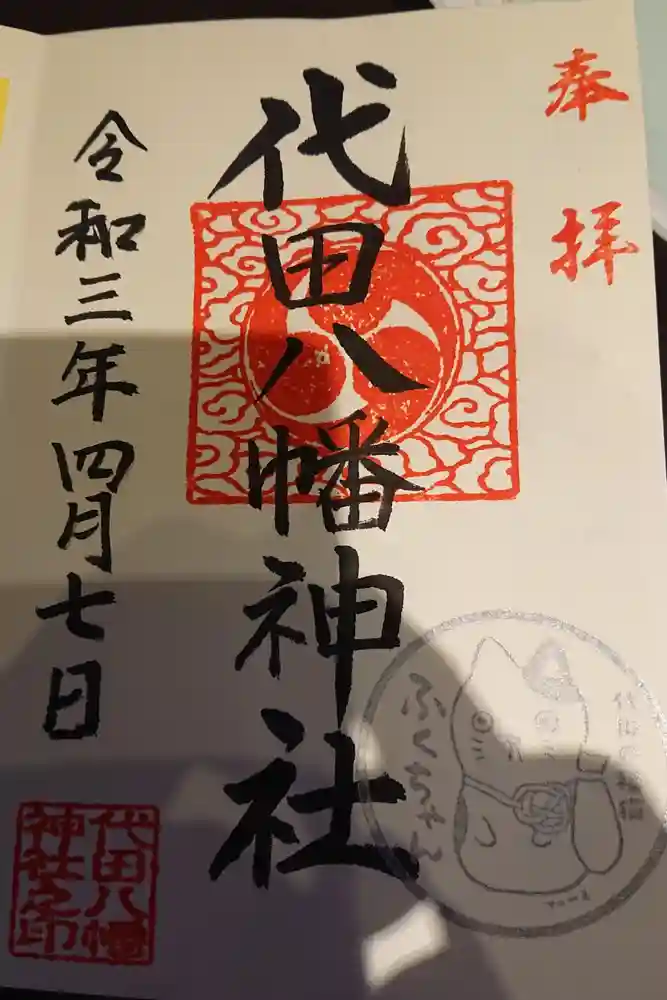 奉拝
代田八幡神社
令和三年四月七日
代田八幡
神社之印
ふくちゃん